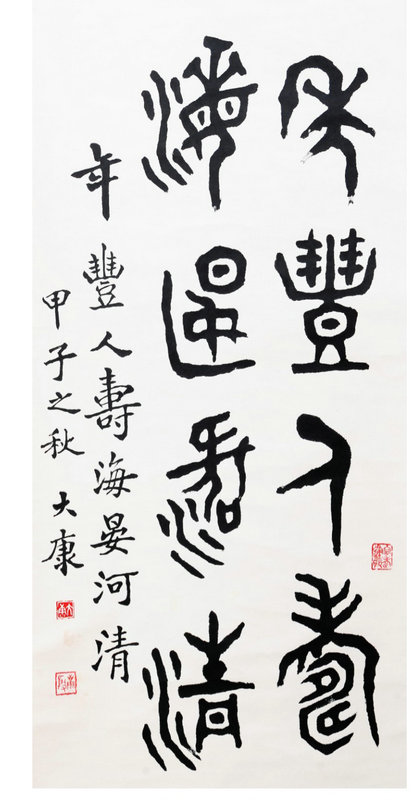 年豐人壽
海晏河清
年豐人壽海晏河清
甲子之秋 大康